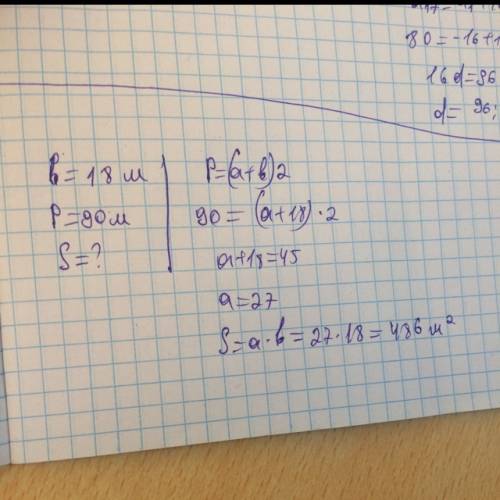 80=-16+1
16d=96
d= 96:
b=18 м
P=90м
S=?
P=(a+b)2
90=(a+18)·2
a+18=45
a=27
S=a·b=27·18=486 м²